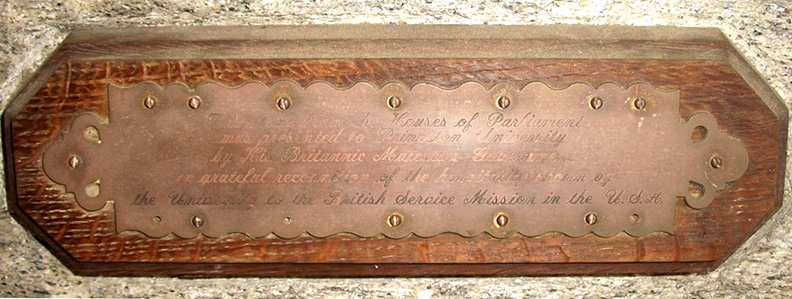 Houses of Parliament
was presented to Princeton University
by His Britannic Majesty's Government
in grateful recognition of the hospitality shown by
the University to the British Service Mission in the U.S.A.